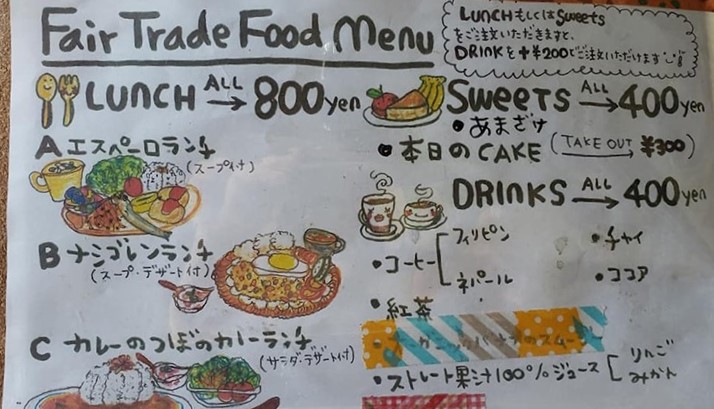 Fair Trade Food Menu
LUNCHもしくはSweets
をご注文いただきますと、
DRINKを+¥200でご注文いただけます
LUNCH ALL → 800yen
A エスペーロランチ
(スープ付)
B ナシゴレンランチ
(スープ・デザート付)
C カレーのつぼのカレーランチ
(サラダ・デザート付)
SWEETS ALL → 400yen
・あまざけ
・本日のCAKE (TAKE OUT → ¥300)
DRINKS ALL → 400yen
・コーヒー フィリピン
ネパール
・紅茶
・チャイ
・ココア
・ストレート果汁100%ジュース りんご
みかん